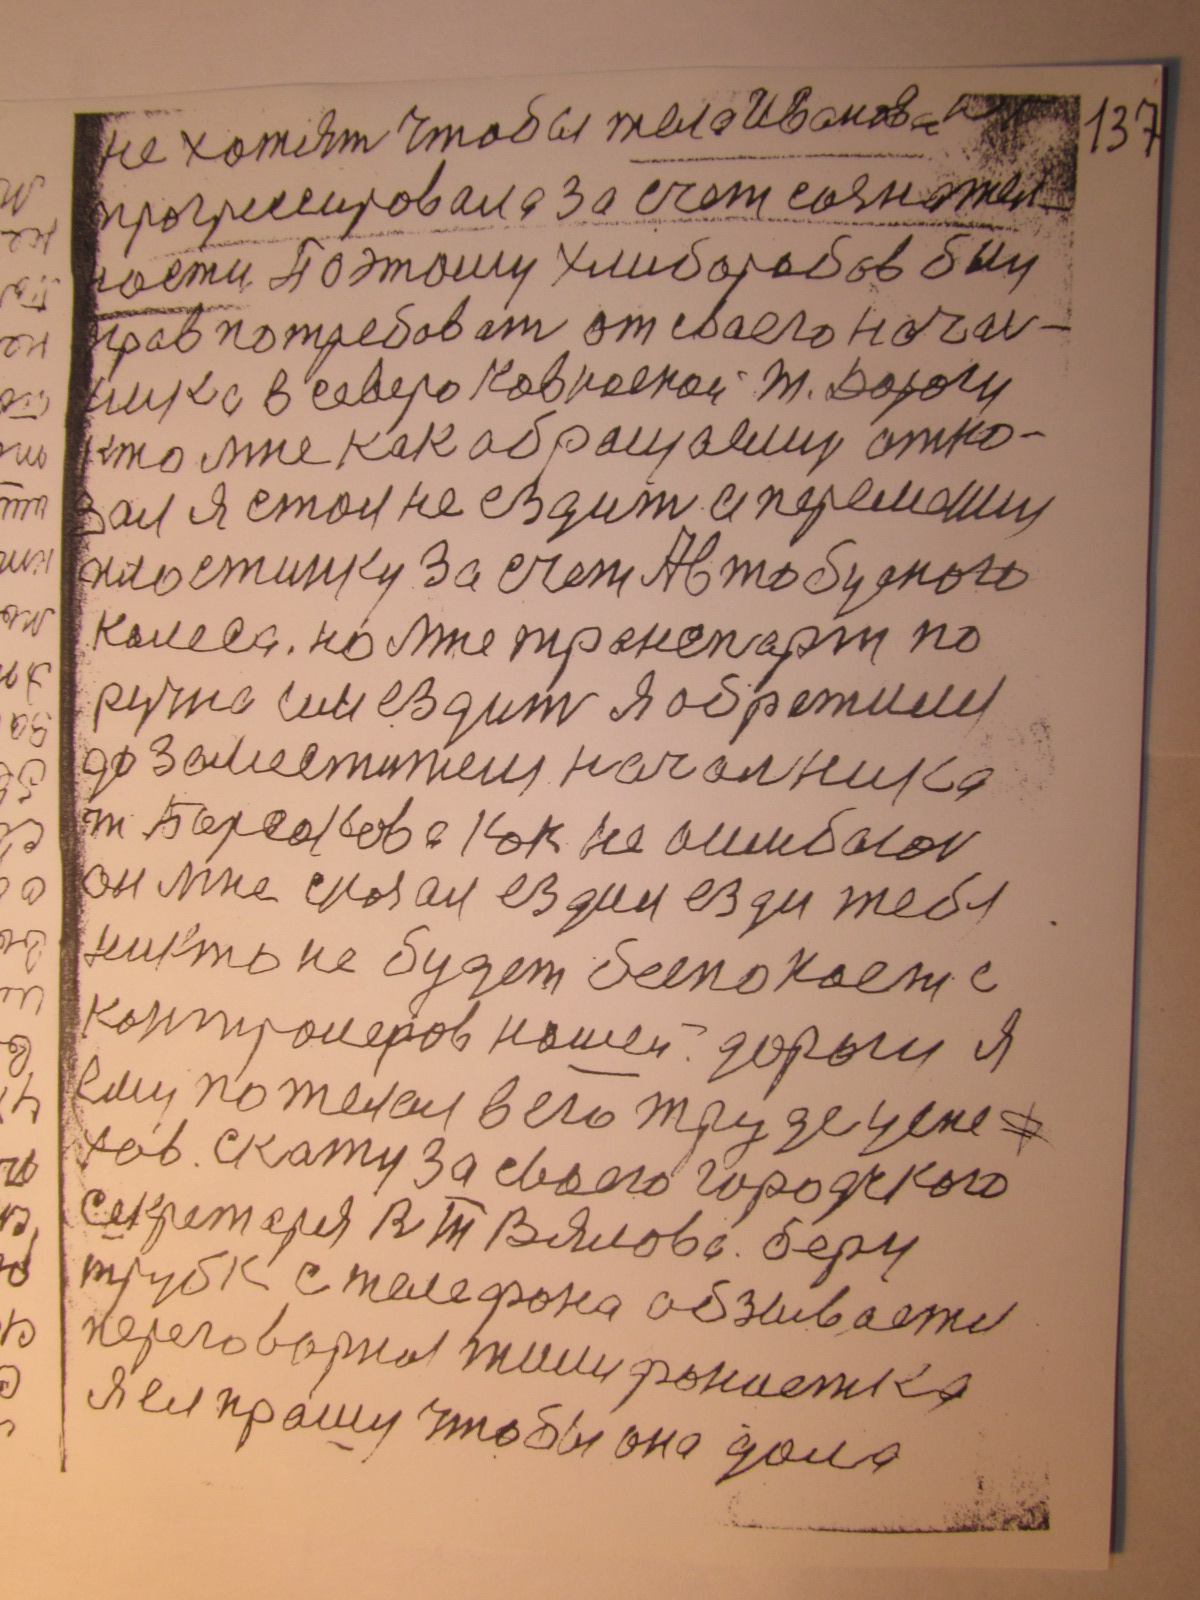 137
не хотят чтобы тела Иванова
прогрессировала за счет сознател-
ности. Поэтому Хлиборобов был
прав потребоват от своего начал-
ника в северо Кавказкой ж. дороги
кто мне как обращаему отка-
зал я стал не ездит а перемешу
пластинку за счет Автобусного
колеса. но мне транспарт по
ручна им ездит я обретили
до заместители началника
т Барсакова как не ошибаюс
он мне сказал ездил езди тебя
никто не будет беспокоет с
контролеров нашей дороги я
ему пожелал в его труде успе
хов. скажу за своего городского
секретаря В Т Вялова. беру
трубк с телефона обзиваетя
переговорная тилифонистка
я ея прашу чтобы она дала